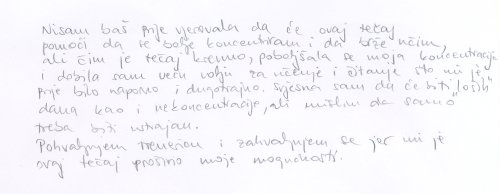 Nisam baš prije vjerovala da će ovaj tečaj
pomoći da se bolje koncentriram i da brže učim,
ali čim je tečaj krenuo, poboljšala se moja koncentracija
i dobila sam veću volju za učenje i čitanje što mi je
prije bilo naporno i dugotrajno. Svjesna sam da će biti "loših"
dana kao i nekoncentracije, ali mislim da samo
treba biti ustrajan.
Pohvaljujem trenericu i zahvaljujem se jer mi je
ovaj tečaj proširio moje mogućnosti.